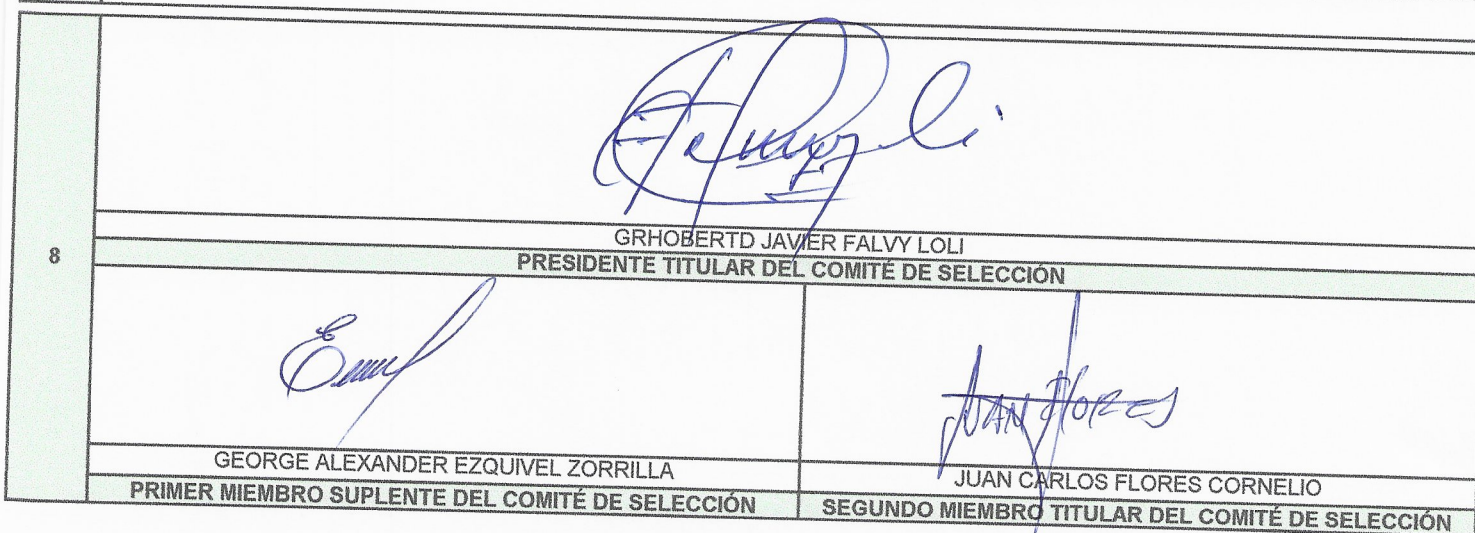 8
GRHOBERTD JAVIER FALVY LOLI
PRESIDENTE TITULAR DEL COMITÉ DE SELECCIÓN
GEORGE ALEXANDER EZQUIVEL ZORRILLA
PRIMER MIEMBRO SUPLENTE DEL COMITÉ DE SELECCIÓN
JUAN FLORES
JUAN CARLOS FLORES CORNELIO
SEGUNDO MIEMBRO TITULAR DEL COMITÉ DE SELECCIÓN